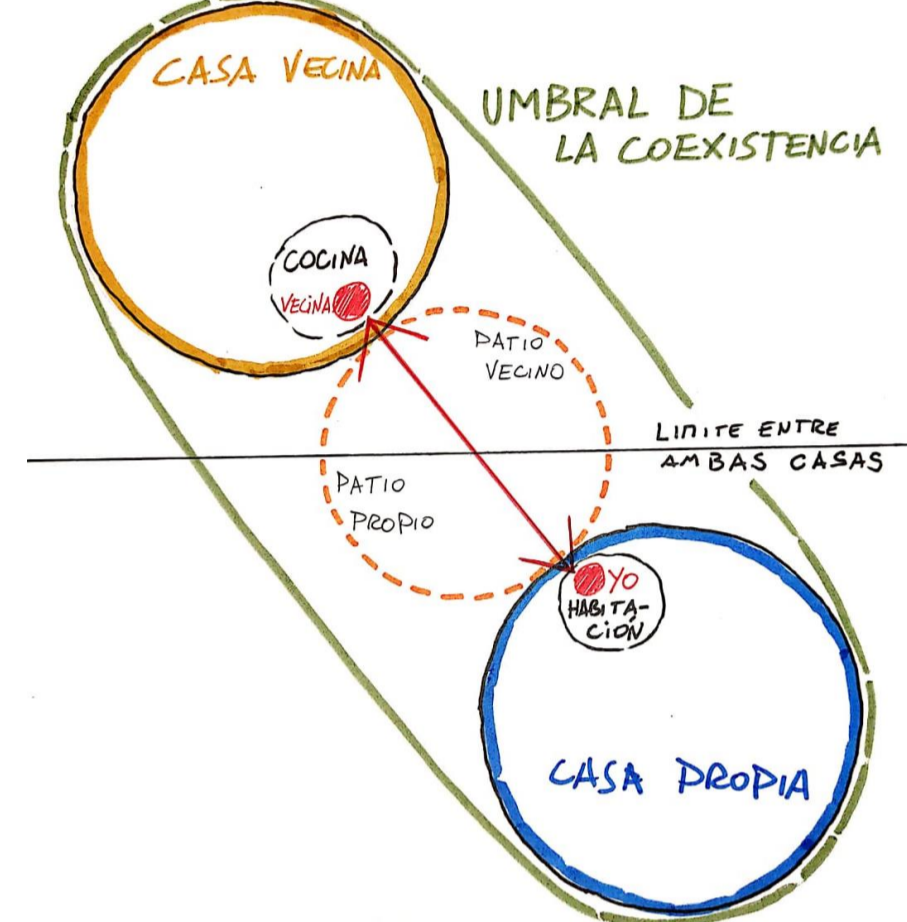 CASA VECINA
UMBRAL DE
LA COEXISTENCIA
COCINA
VECINA
PATIO
VECINO
LIMITE ENTRE
AMBAS CASAS
PATIO
PROPIO
YO
HABITA-
CIÓN
CASA PROPIA